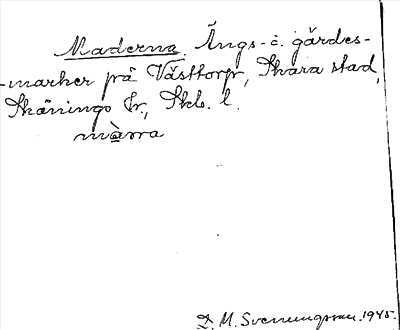 Maderna. Ängs- o. gärdes-
-marker på Västtorp, Skara stad,
Skånings hr., Skb. l.
màrra
D. M. Svenungsson. 1945.